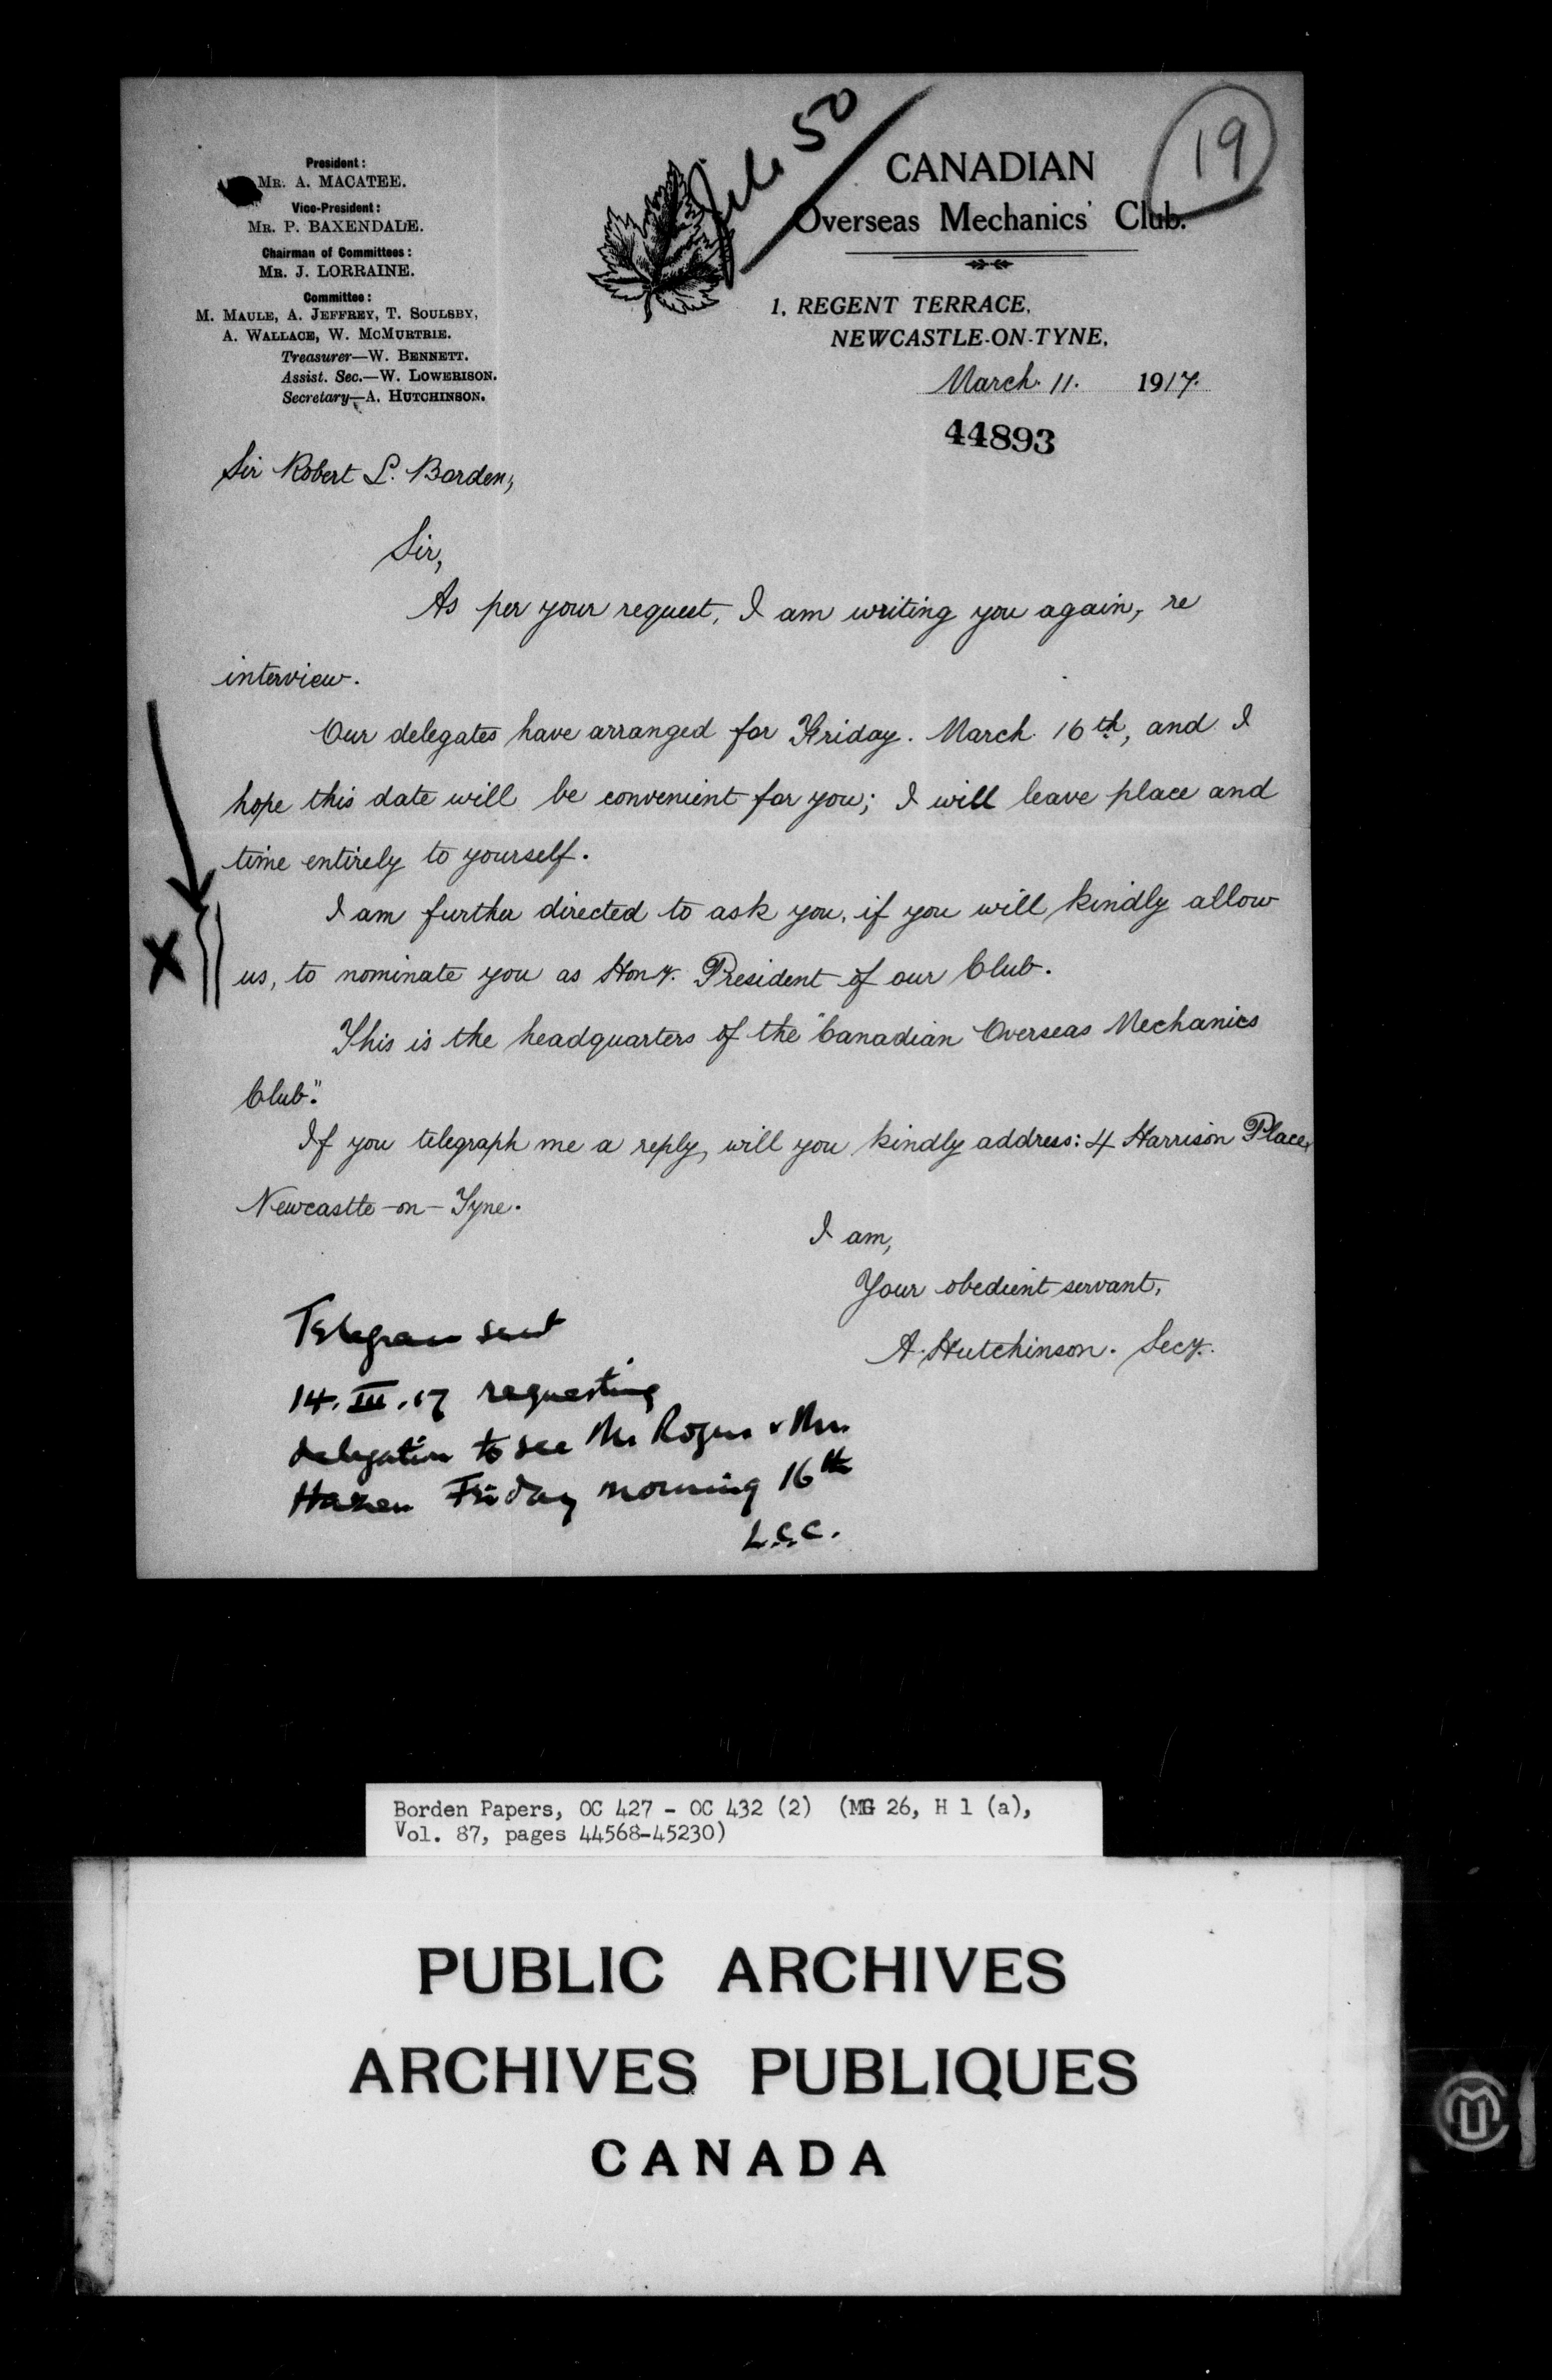 File 50
19
President:
MR. A. MACATEE.
Vice-President:
MR. P. BAXENDALE.
Chairman of Committees:
MR. J. LORRAINE.
Committee:
M. MAULE, A. JEFFREY, T. SOULSBY,
A. WALLACE, W. MCMURTRIE.
Treasurer—W. BENNETT.
Assist. Sec.—W. LOWERISON.
Secretary—A. HUTCHINSON.
CANADIAN
Overseas Mechanics' Club.
1, REGENT TERRACE,
NEWCASTLE-ON-TYNE,
March. 11. 1917.
44893
Sir Robert L. Borden,
Sir,
As per your request, I am writing you again, re
interview.
Our delegates have arranged for Friday. March 16th, and I
hope this date will be convenient for you; I will leave place and
time entirely to yourself.
I am further directed to ask you, if you will kindly allow
X
us, to nominate you as Hony. President of our Club.
This is the headquarters of the "Canadian Overseas Mechanics
Club."
If you telegraph me a reply, will you kindly address: 4 Harrison Place,
Newcastle-on-Tyne.
I am,
Your obedient servant,
A. Hutchinson. Secy.
Telegram sent
14.III.17 requesting
delegation to see Mr Rogers & Mr.
Hazen Friday morning 16th
L.C.C.
Borden Papers, OC 427 - OC 432 (2) (MG 26, H 1 (a),
Vol. 87, pages 44568-45230)
PUBLIC ARCHIVES
ARCHIVES PUBLIQUES
CANADA